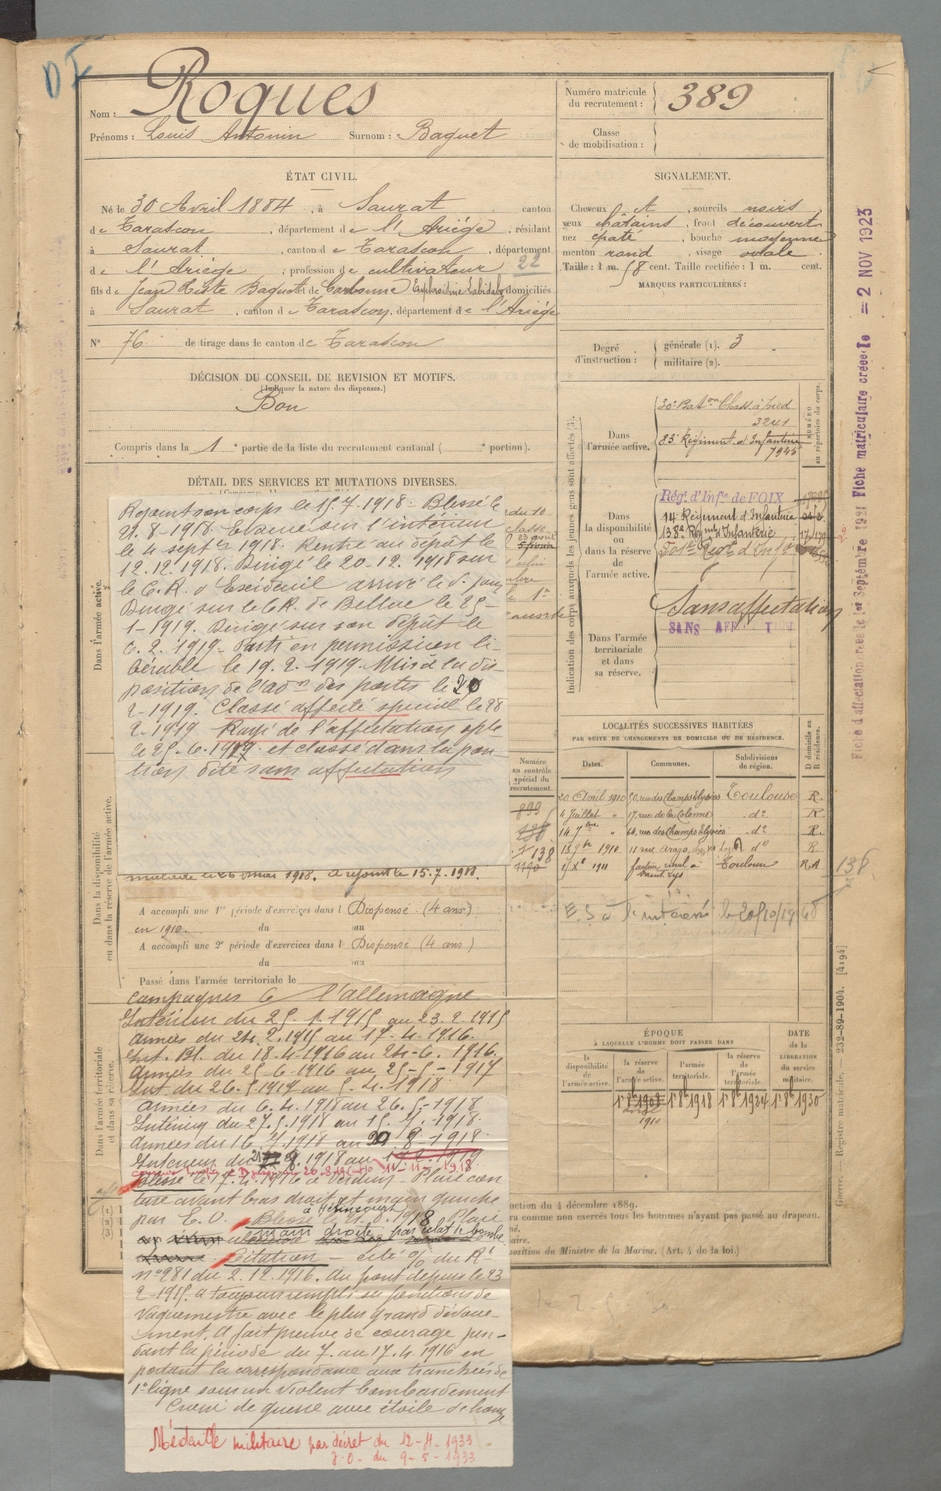 Nom : Roques
Prénoms : Louis Antonin Surnom : Baquet
Numéro matricule du recrutement : 389
Classe de mobilisation :
ÉTAT CIVIL.
Né le 30 Avril 1884, à Saurat canton
de Tarascon, département de l'Ariège, résidant
à Saurat, canton de Tarascon, département
de l'Ariège, profession de cultivateur 22
fils de Jean Baquet et de domiciliés
à Saurat, canton de Tarascon, département de l'Ariège
N° 76 de tirage dans le canton de Tarascon
SIGNALEMENT.
Cheveux et, sourcils noirs
yeux châtains, front découvert
nez épaté, bouche moyenne
menton rond, visage ovale
Taille : 1 m. 58 cent. Taille rectifiée : 1 m. cent.
MARQUES PARTICULIÈRES :
Degré d'instruction : générale (1). 3
militaire (2).
DÉCISION DU CONSEIL DE REVISION ET MOTIFS.
(Indiquer la nature des dispenses.)
Bon
Compris dans la 1e partie de la liste du recrutement cantonal ( e portion).
DÉTAIL DES SERVICES ET MUTATIONS DIVERSES.
Rejoint son corps le 15.7.1918. Blessé le
21.8.1918. Evacué sur l'intérieur
le 4 septbre 1918. Rentré au dépôt le
12.12.1918. Dirigé le 20.12.1918 sur
le C.R. d'Excideuil arrivé le d. jour
Dirigé sur le C.R. de Bellac le 25-
1-1919. Dirigé sur son dépôt le
6.2.1919. Parti en permission li-
bérable le 19.2.1919. Mis à la dis
position de l'adon des postes le 20
2-1919. Classé affecté spécial le 28
2-1919. Rayé de l'affectation sple
le 25-6.1919 et classé dans la posi-
tion dite sans affectation
malade le 26 mai 1918. Rejoint le 15.7.1918.
A accompli une 1re période d'exercices dans l Dispensé (4 ans)
en 1910. du au
A accompli une 2e période d'exercices dans l Dispensé (4 ans)
du au
Passé dans l'armée territoriale le
Campagnes C l'allemagne
Intérieur du 25.1.1915 au 23.2.1915
Armées du 24.2.1915 au 17.4.1916.
Int. Bl. du 18.4.1916 au 24-6.1916.
Armées du 25.6.1916 au 25-5-1917
Int. du 26.5.1917 au 5.4.1918
Armées du 6.4.1918 au 26.5-1918
Intérieur du 27.5.1918 au 15.7.1918
Armées du 16.7.1918 au 20 8-1918
Intérieur du 21 8.1918 au
Blessé le 17.4.1916 à Verdun. Plaie con
tuse avant bras droit et main gauche
par E.O. Blessé le 21.8.1918 Plaie
main droite par éclat de bombe
Citation cité % du Rt
n° 281 du 2.12.1916. Au front depuis le 23
2-1915. a toujours rempli ses fonctions de
vaguemestre avec le plus grand dévoue-
ment. A fait preuve de courage pen-
dant la période du 7 au 17.4.1916 en
portant la correspondance aux tranchées de
1e ligne sous un violent bombardement
Croix de guerre avec étoile de bronze
Médaille militaire par décret du 12-4-1933
J.O. du 9-5-1933
Dans l'armée active.
Dans la disponibilité ou dans la réserve de l'armée active.
Dans l'armée territoriale et dans sa réserve.
Indication des corps auxquels les jeunes gens sont affectés (3).
NUMÉRO au répertoire du corps.
Dans l'armée active. 30e Baton Chass. à pied
3241
83e Régiment d'Infanterie
7945
Dans la disponibilité ou dans la réserve de l'armée active.
Régt d'Infie de FOIX
14 Régiment d'Infanterie
138e Régmt d'Infanterie
Dans l'armée territoriale et dans sa réserve.
Sans affectation
SANS AFFECTATION
LOCALITÉS SUCCESSIVES HABITÉES
PAR SUITE DE CHANGEMENTS DE DOMICILE OU DE RÉSIDENCE.
Dates. Communes. Subdivisions de région. D domicile ou R résidence.
20 Avril 1910 rue des Champs Elysées Toulouse R.
4 Juillet " 17 rue de la Colonne do R
14 7bre " 64, rue des Champs Elysées do R.
1910 11 rue Arago do R
1911 facteur rural à Saint Lys Toulouse RA
Numéro au contrôle spécial du recrutement.
899
138
138
ÉPOQUE
À LAQUELLE L'HOMME DOIT PASSER DANS
la disponibilité de l'armée active.
la réserve de l'armée active.
l'armée territoriale.
la réserve de l'armée territoriale.
DATE de la LIBÉRATION du service militaire.
1er 8bre 1918
1er 8bre 1924
1er 8bre 1930
avril 1910
uction du 4 décembre 1889.
ra comme non exercés tous les hommes n'ayant pas passé au drapeau.
position du Ministre de la Marine. (Art. 4 de la loi.)
Fiche matriculaire créée le = 2 NOV 1923
Registre matricule. 232-89-1904. [4194]
138